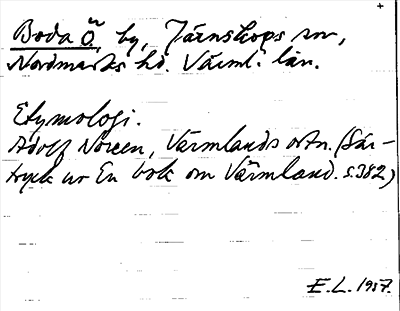 +
Boda Ö, by, Järnskogs sn,
Nordmarks hd. Värml. län.
Etymologi.
Adolf Noreen, Värmlands ortn. (Sär-
tryck ur En bok om Värmland. s. 382)
E.L. 1957.